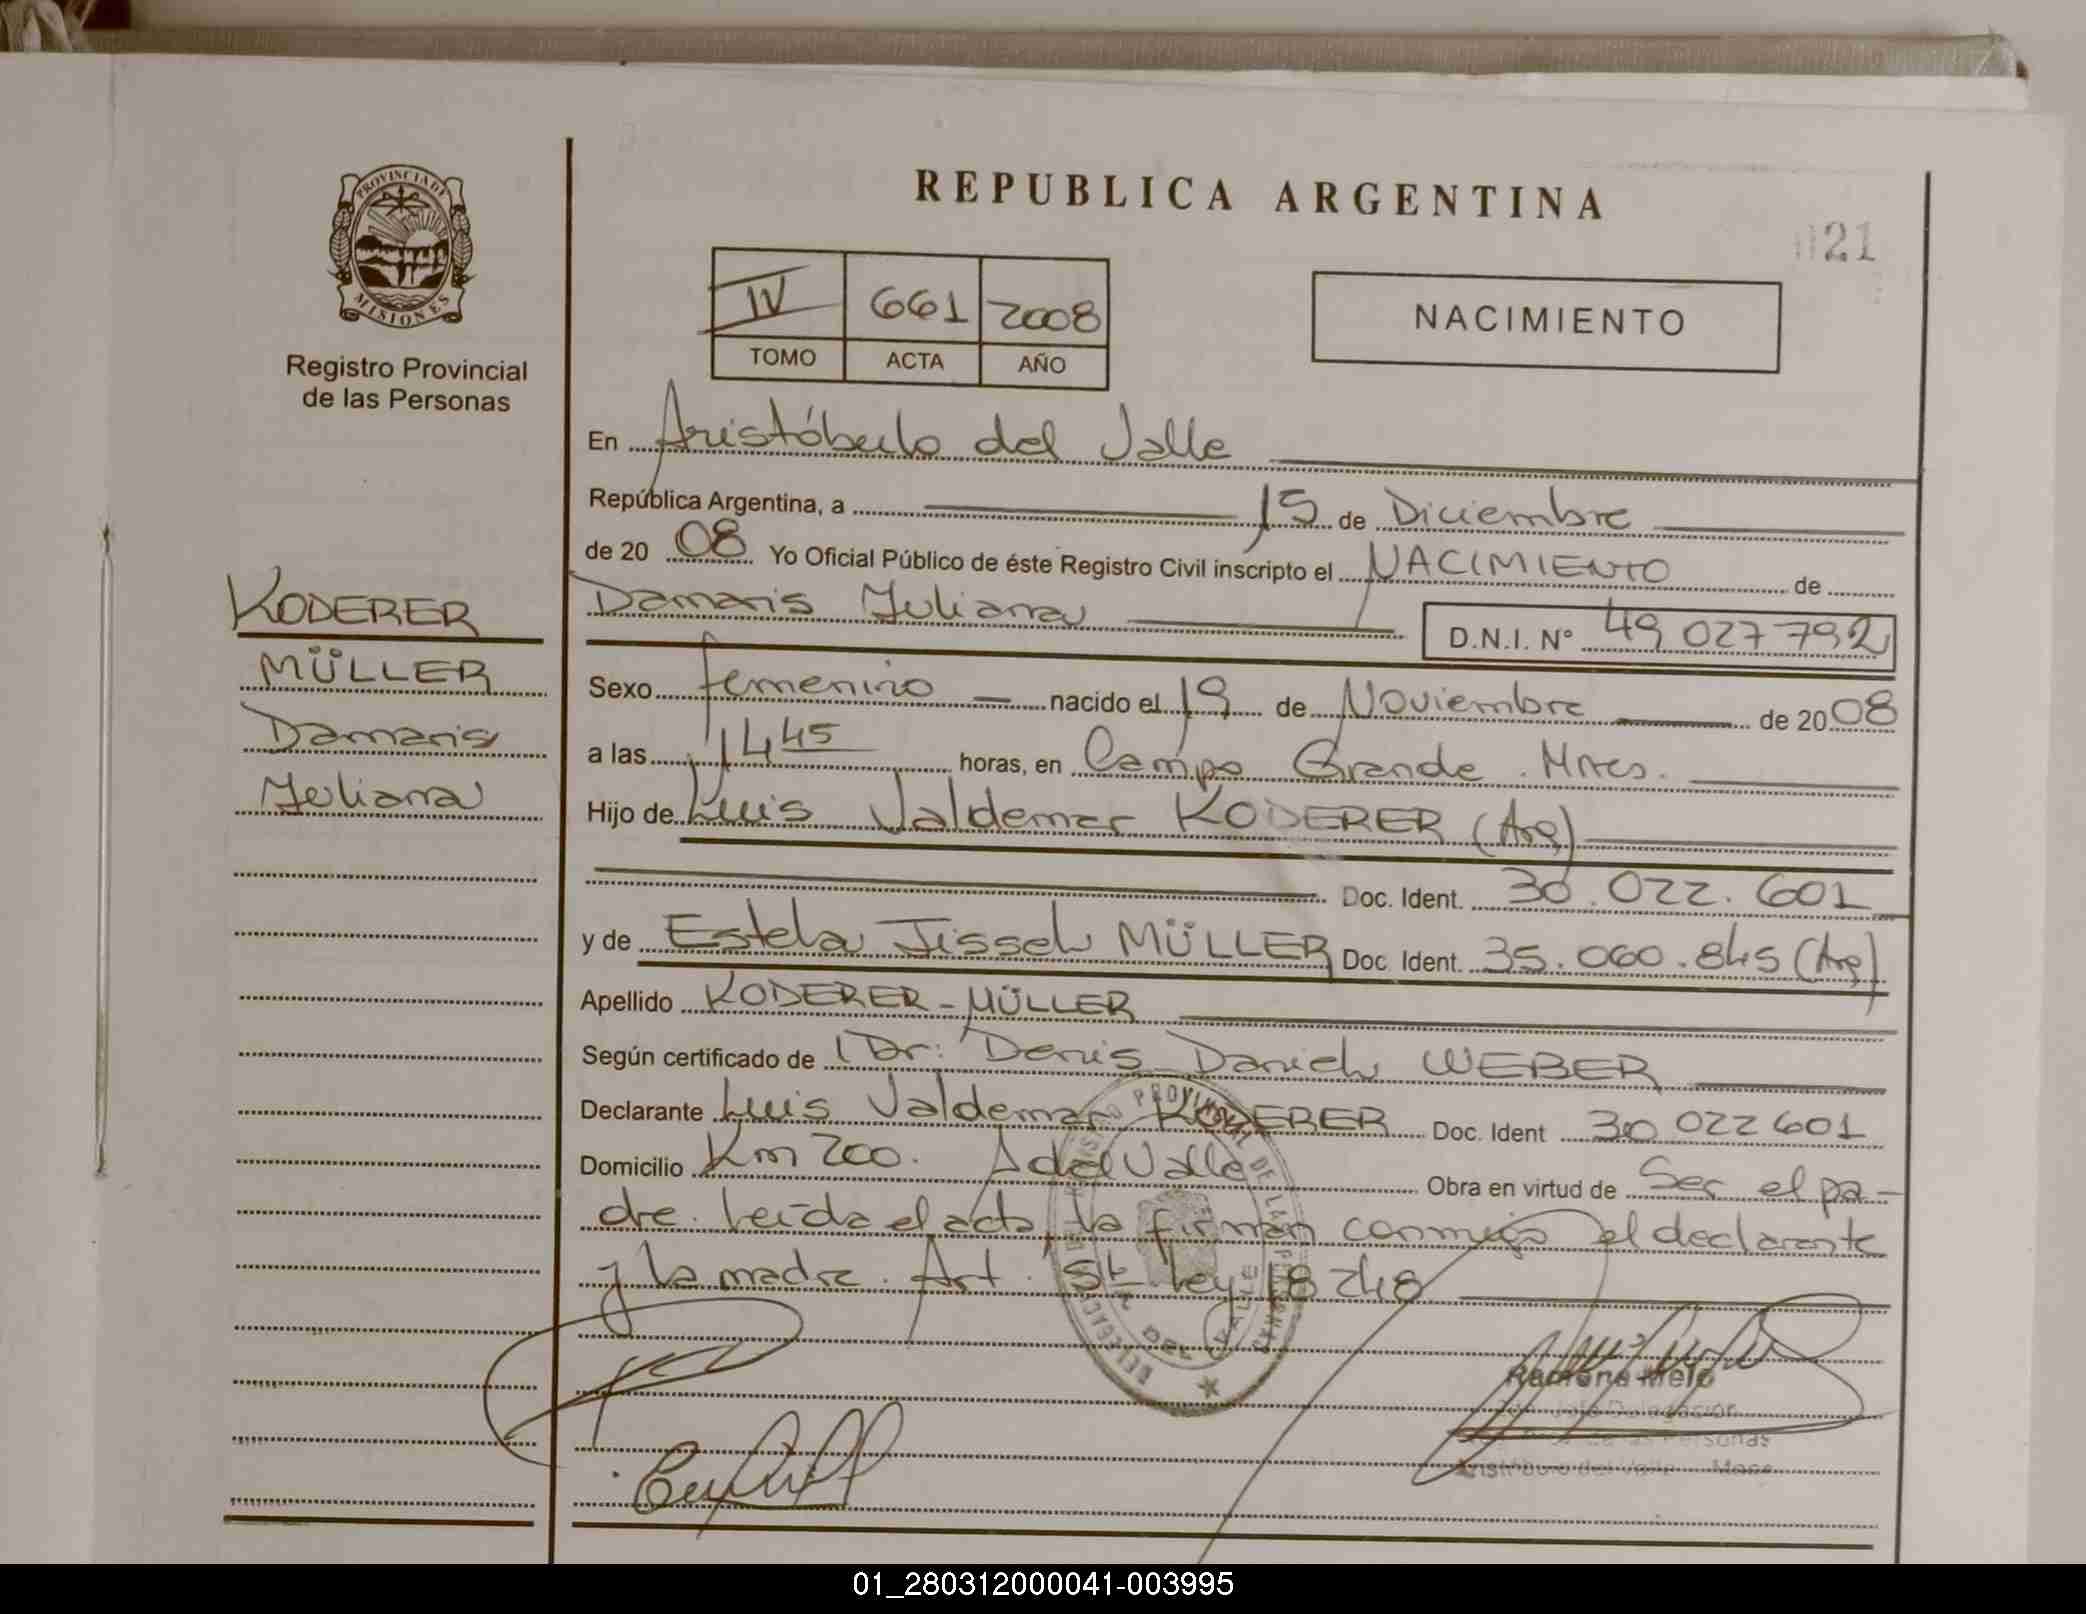 PROVINCIA DE
MISIONES
Registro Provincial
de las Personas
REPUBLICA ARGENTINA
21
IV 661 2008
TOMO ACTA AÑO
NACIMIENTO
En Aristóbulo del Valle
República Argentina, a 15 de Diciembre
de 20 08 Yo Oficial Público de éste Registro Civil inscripto el NACIMIENTO de
Damaris Yuliana D.N.I. N° 49 027 792
Sexo femenino nacido el 19 de Noviembre de 20 08
a las 14 45 horas, en Campo Grande. Mnes.
Hijo de Luis Valdemar KODERER (Arg)
Doc. Ident. 30.022.601
y de Estela Jissel MÜLLER Doc. Ident. 35.060.845 (Arg)
Apellido KODERER-MÜLLER
Según certificado de Dr: Denis Daniel WEBER
Declarante Luis Valdemar KODERER Doc. Ident 30 022 601
Domicilio Km 200. A del Valle Obra en virtud de Ser el pa-
dre. Leída el acta, la firman conmigo el declarante
y la madre. Art. 5t Ley 18 248
KODERER
MÜLLER
Damaris
Yuliana
DEL VALLE
Ramona Melo
Jefe Delegacion
de las Personas
Aristóbulo del Valle Mnes
01_280312000041-003995